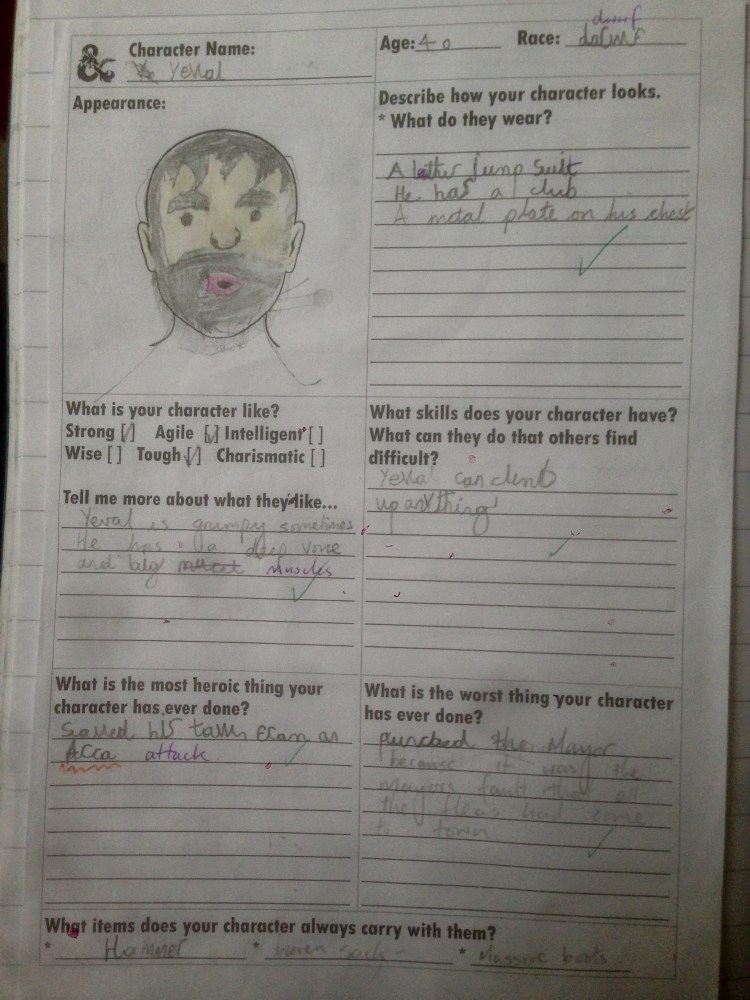 Character Name:
Yeval
Age: 40
Race: dwarf
Appearance:
Describe how your character looks.
* What do they wear?
A lather jump suit
He has a club
A metal plate on his chest
What is your character like?
Strong [✓] Agile [✓] Intelligent [ ]
Wise [ ] Tough [✓] Charismatic [ ]
Tell me more about what they like...
Yeval is grumpy sometimes
He has a deep voice
and big muscles
What skills does your character have?
What can they do that others find
difficult?
Yeval can climb
up anything
What is the most heroic thing your
character has ever done?
his town from an
Acca attack
What is the worst thing your character
has ever done?
punched the Mayor
because it was the
mayors fault that all
the fleas had come
to town
What items does your character always carry with them?
* Hammer * woven sack * Massive boots